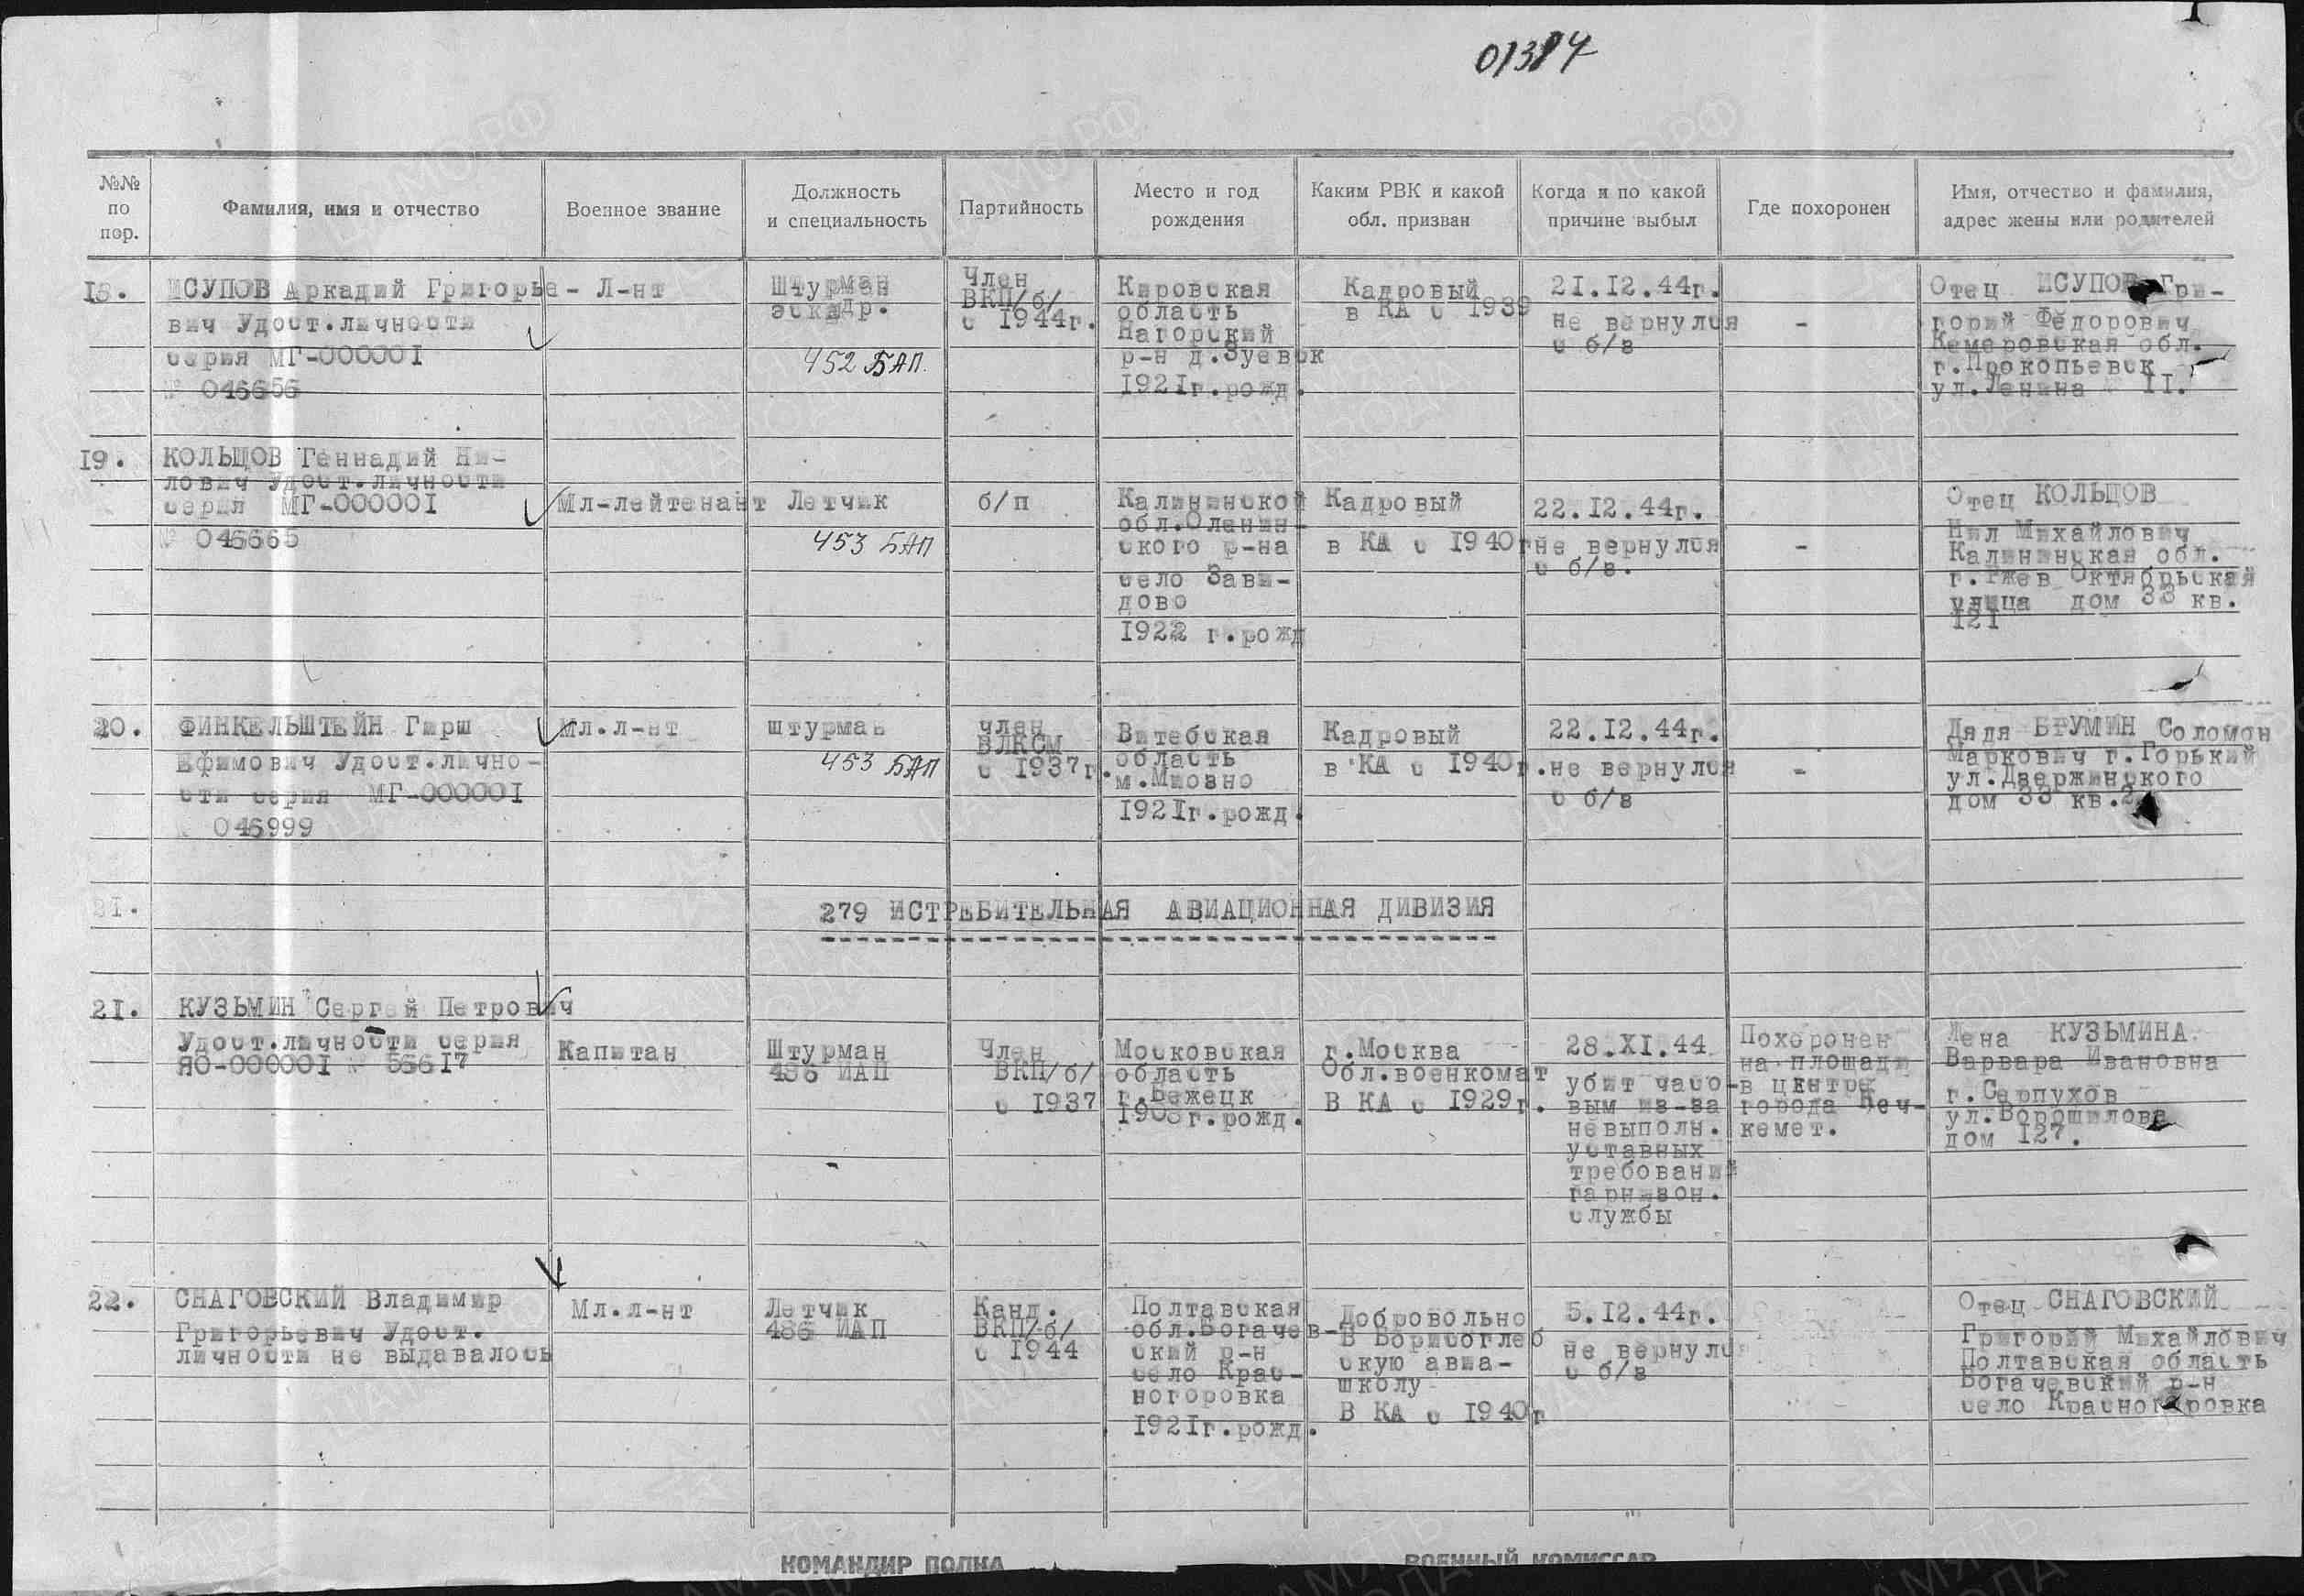 01384
№№ по пор.
Фамилия, имя и отчество
Военное звание
Должность и специальность
Партийность
Место и год рождения
Каким РВК и какой обл. призван
Когда и по какой причине выбыл
Где похоронен
Имя, отчество и фамилия, адрес жены или родителей
18.
ИСУПОВ Аркадий Григорье-
вич Удост.личности
серия МГ-000001
№ 046656
Л-нт
Штурман
эскадр.
452 БАП.
Член
ВКП/б/
с 1944г.
Кировская
область
Нагорский
р-н д.Зуевск
1921г.рожд.
Кадровый
в КА с 1939
21.12.44г.
не вернулся
с б/з
-
Отец ИСУПОВ Гри-
горий Фёдорович
Кемеровская обл.
г.Прокопьевск
ул.Ленина 11.
19.
КОЛЬЦОВ Геннадий Ни-
лович Удост.личности
серия МГ-000001
№ 046665
Мл-лейтенант
Летчик
453 БАП
б/п
Калининской
обл.Оленин-
ского р-на
село Зави-
дово
1922 г.рожд
Кадровый
в КА с 1940г
22.12.44г.
не вернулся
с б/з.
-
Отец КОЛЬЦОВ
Нил Михайлович
Калининская обл.
г.Ржев Октябрьская
улица дом 33 кв.
121
20.
ФИНКЕЛЬШТЕЙН Гирш
Ефимович Удост.лично-
сти серия МГ-000001
046999
Мл.л-нт
штурман
453 БАП
член
ВЛКСМ
с 1937г.
Витебская
область
м.Миозно
1921г.рожд.
Кадровый
в КА с 1940г.
22.12.44г.
не вернулся
с б/з
-
Дядя БРУМИН Соломон
Маркович г.Горький
ул.Дзержинского
дом 33 кв.2
21.
279 ИСТРЕБИТЕЛЬНАЯ АВИАЦИОННАЯ ДИВИЗИЯ
21.
КУЗЬМИН Сергей Петрович
Удост.личности серия
ЯО-000001 № 56617
Капитан
Штурман
486 ИАП
Член
ВКП/б/
с 1937
Московская
область
г.Бежецк
1908г.рожд.
г.Москва
Обл.военкомат
В КА с 1929г.
28.XI.44
убит часо-
вым из-за
невыполн.
уставных
требований
гарнизон.
службы
Похоронен
на площади
в центре
города Кеч-
кемет.
Жена КУЗЬМИНА
Варвара Ивановна
г.Серпухов
ул.Ворошилова
дом 127.
22.
СНАГОВСКИЙ Владимир
Григорьевич Удост.
личности не выдавалось
Мл.л-нт
Летчик
486 ИАП
Канд.
ВКП/б/
с 1944
Полтавская
обл.Богачев-
ский р-н
село Крас-
ногоровка
1921г.рожд.
Добровольно
В Борисоглеб
скую авиа-
школу
В КА с 1940г
5.12.44г.
не вернулся
с б/з
Отец СНАГОВСКИЙ
Григорий Михайлович
Полтавская область
Богачевский р-н
село Красногоровка
КОМАНДИР ПОЛКА
ВОЕННЫЙ КОМИССАР